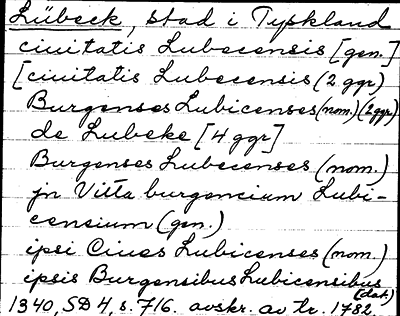 Lübeck, stad i Tyskland
ciuitatis Lubecensis [gen.]
[ciuitatis Lubecensis (2 ggr)
Burgenses Lubicenses (nom.) (2 ggr)
de Lubeke [4 ggr]
Burgenses Lubecenses (nom.)
jn Vitta burgencium Lubi-
censium (gen.)
ipsi Ciues Lubicenses (nom.)
ipsis Burgensibus Lubicensibus
(dat.)
1340, SD 4, s. 716. avskr. av tr. 1782.